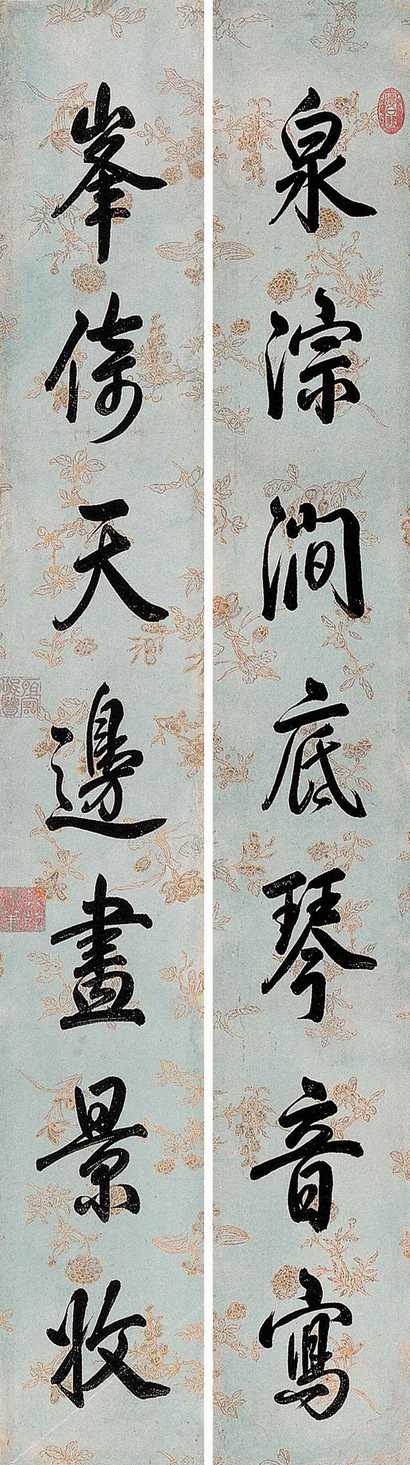 泉淙澗底琴音寫
峯倚天邊畫景收